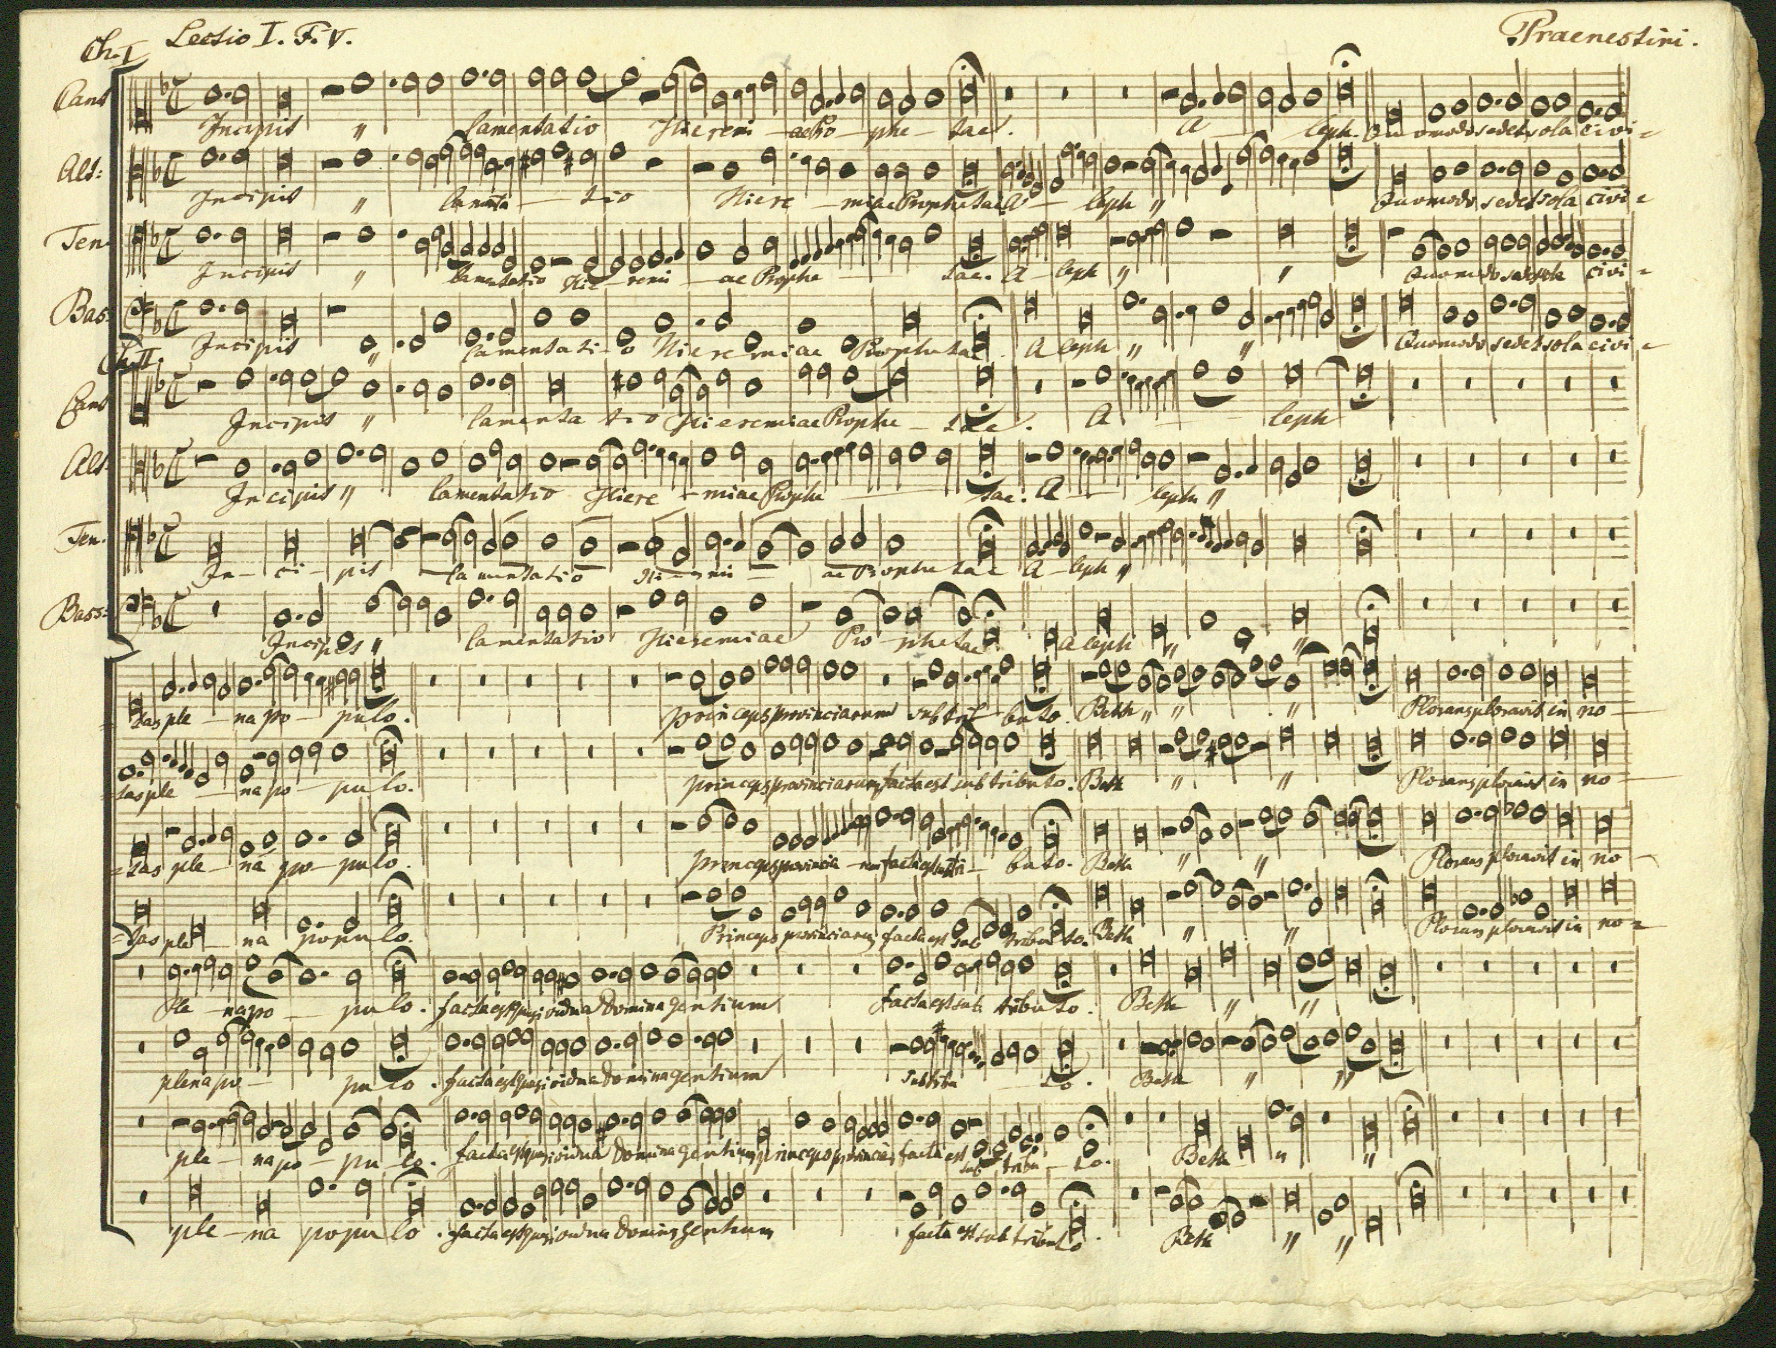 Ch. I Lectio I. F. V. Praenestini.
Cant
Incipit " lamentatio Hieremi - ae Pro - phe - tae. A leph. Quomodo sedet sola civi =
Alt:
Incipit " lamta - tio Hiere - miae Prophetae A - leph "  Quomodo sedet sola civi =
Ten
Incipit " lamentatio Hie - remi - ae Prophe tae. A - leph " " Quomodo sedet sola civi =
Bas:
Incipit " lamentati - o Hieremiae Prophetae. A leph " " Quomodo sedet sola civi =
Ch. II.
Cant
Incipit " lamenta tio Hieremiae Prophe - tae. A - leph
Alt
Incipit " lamentatio Hiere - miae Prophe - tae. A - leph "
Ten.
In - ci - pit - lamentatio Hi - remi - ae Prophe tae A - leph "
Bass:
Incipit " lamentatio Hieremiae Pro - phetae A leph " "
= tas ple - na po - pulo. princeps provinciarum sub tri - buto. Beth " " " Plorans ploravit in no -
= tas ple - na po - pu lo. princeps provinciarum facta est sub tributo. Beth " " Plorans ploravit in no =
= tas ple - na po - pulo. princeps provincia - rum facta est sub tri - buto. Beth " " Plorans ploravit in no -
= tas ple - na populo. Princeps provinciarum facta est sub tributo. Beth " " Plorans ploravit in no =
Ple - na po - pulo. facta est quasi vidua Domina gentium facta est sub tributo. Beth " "
plena po - pu lo. facta est quasi vidua Domina gentium sub tribu - to. Beth " "
ple - na po - pu - lo. facta est quasi vidua Domina gentium princeps provinciarum facta est sub tribu - to. Beth " "
ple - na populo. facta est quasi vidua Domina gentium facta est sub tributo. Beth " "